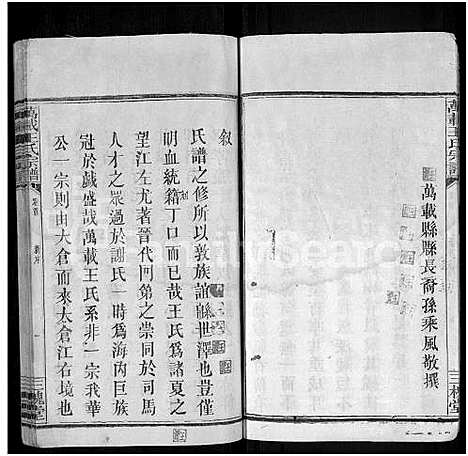 萬載王氏宗譜
萬載縣縣長裔孫乘風敬撰
三槐堂
敘
氏譜之修所以敦族誼緜世澤也豈僅
明血統籍丁口而已哉王氏爲諸夏之
望江左尤著晉代門第之崇同於司馬
門胄之眾過於謝氏一時爲海內巨族
冠於戲盛哉萬載王氏系非一宗我華
公一宗則由大倉而來大倉江右境也
萬載王氏宗譜
卷首
一
三槐堂